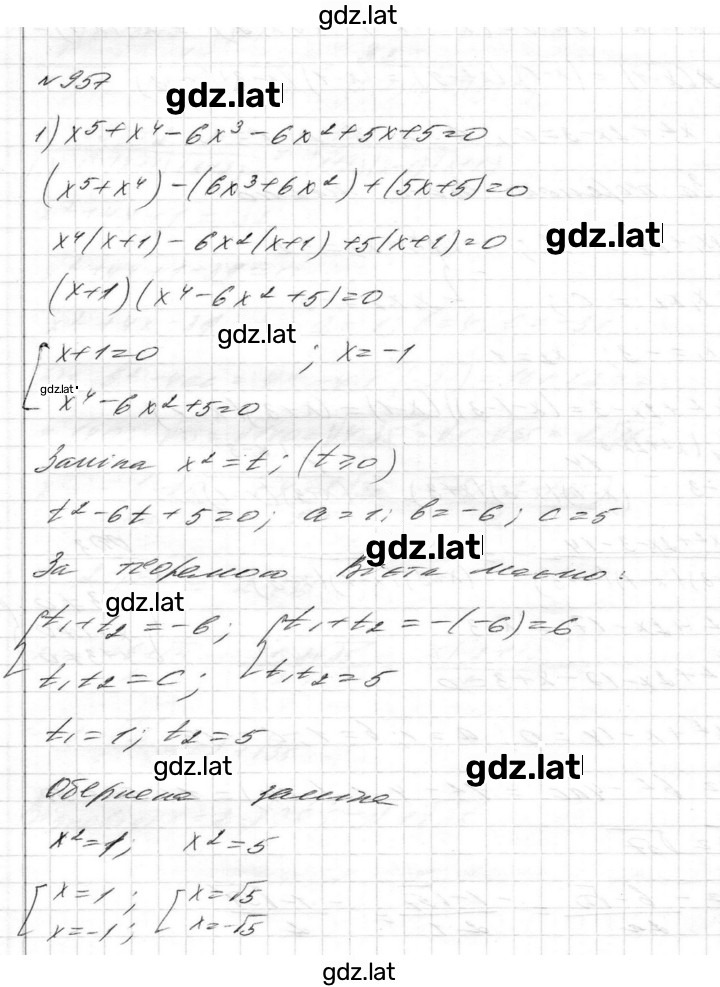 gdz.lat
№957
gdz.lat
1) x⁵+x⁴-6x³-6x²+5x+5=0
(x⁵+x⁴)-(6x³+6x²)+(5x+5)=0
x⁴(x+1)-6x²(x+1)+5(x+1)=0
gdz.lat
(x+1)(x⁴-6x²+5)=0
gdz.lat
[x+1=0 ; x=-1
gdz.lat
x⁴-6x²+5=0
Заміна x²=t; (t≥0)
t²-6t+5=0; a=1; b=-6; c=5
gdz.lat
За теоремою Вієта маємо:
gdz.lat
{t₁+t₂=-b; {t₁+t₂=-(-6)=6
t₁t₂=c; t₁t₂=5
t₁=1; t₂=5
gdz.lat gdz.lat
Обернена заміна
x²=1; x²=5
[x=1; [x=√5
x=-1; x=-√5
gdz.lat